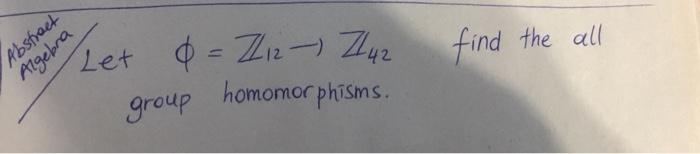 Abstract
Algebra
Let ϕ = ℤ₁₂ → ℤ₄₂ find the all
group homomorphisms.